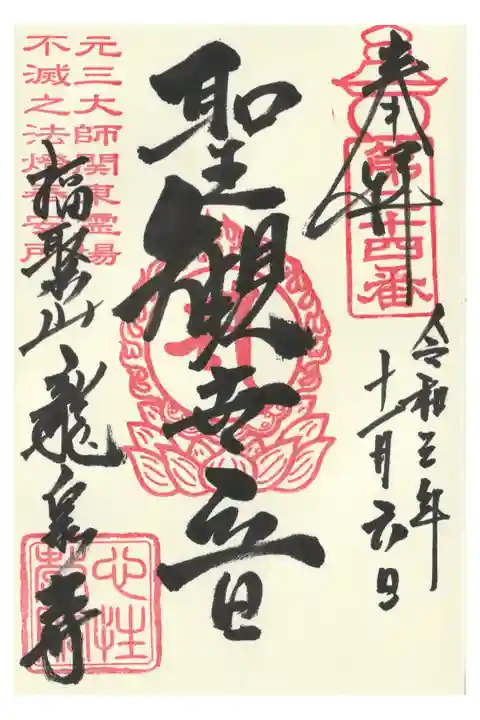 奉拝
第十四番
令和三年
十一月六日
聖觀世音
元三大師關東霊場
不滅之法燈奉安所
福聚山
龍泉寺